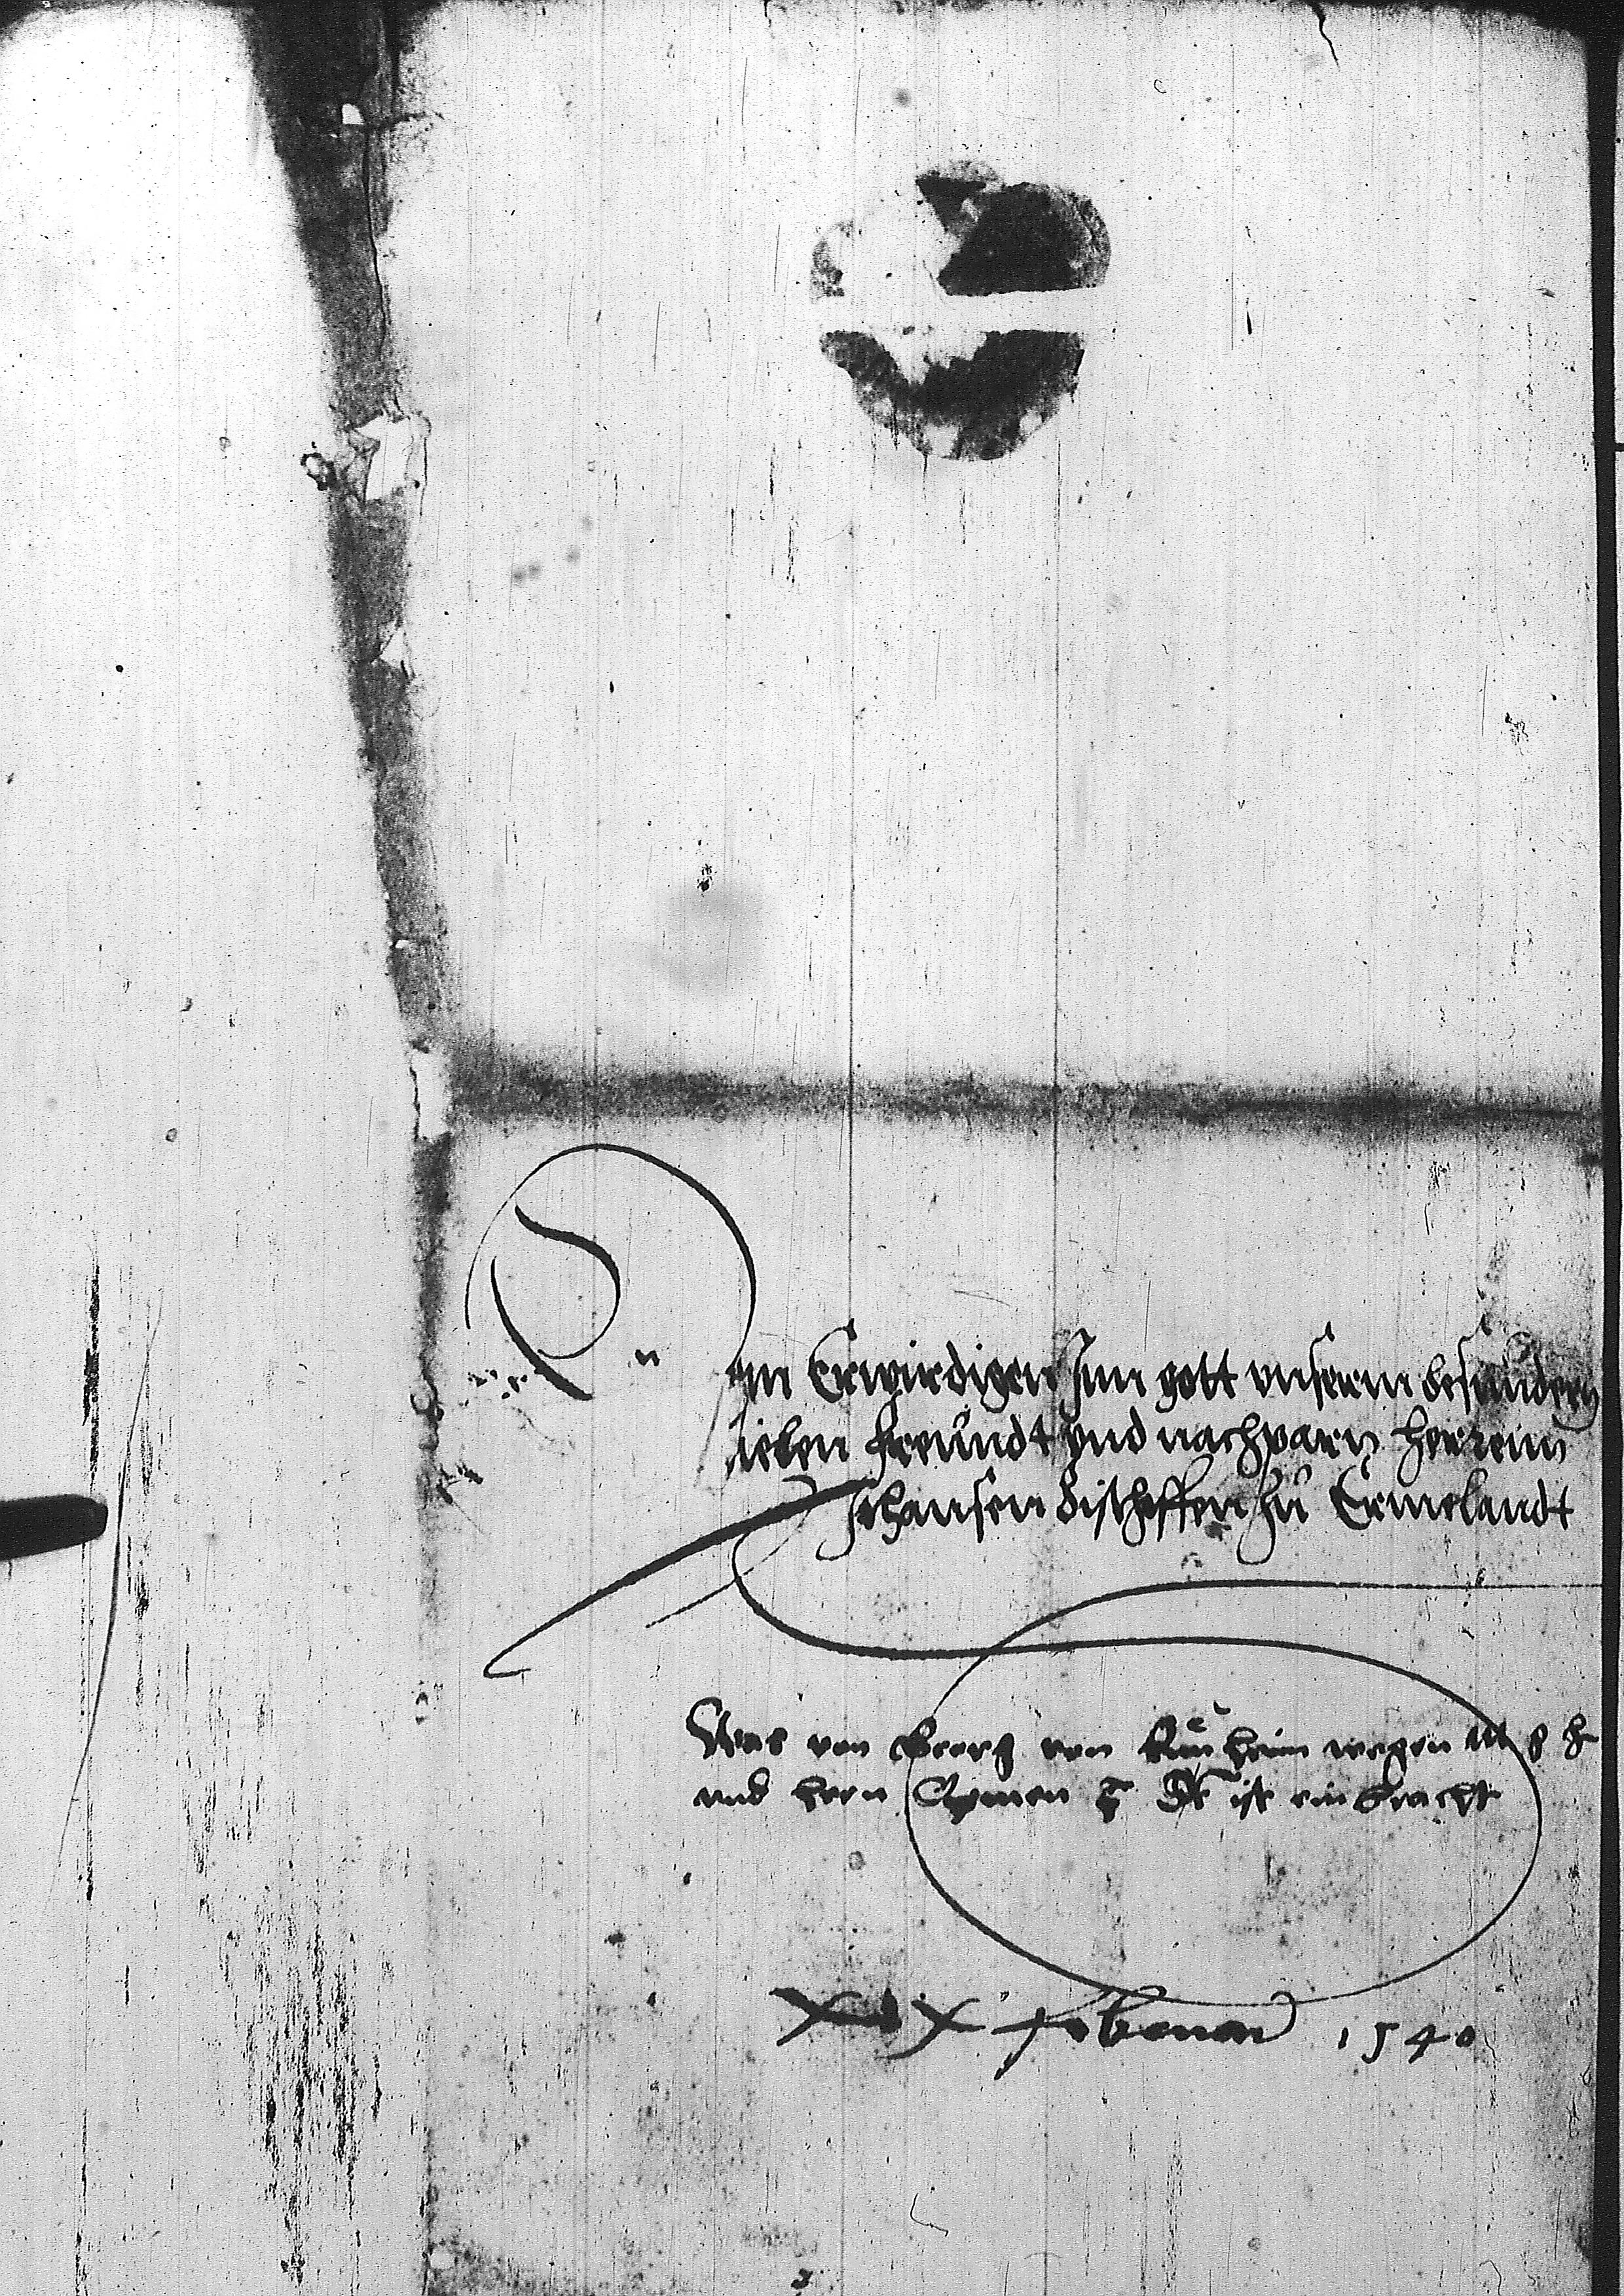 Dem Erwirdigen Inn gott unserm besundern
lieben freundt und nachparn herrenn
Johansen Bischoffen zu Ermelandt
Was von Georg von Kunheim wegen M g h
und hern ist ein bracht
XIX februarii 1540